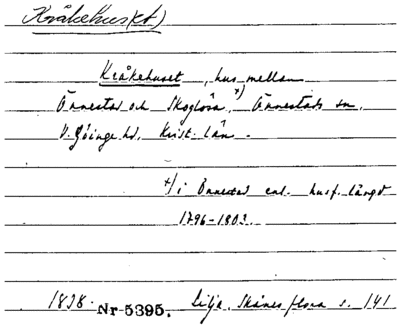 Kråkehus(et)
Kråkehuset, hus mellan
Önnestad och Skoglösa, x) Önnestads sn,
V. Göinge hd, Krist. län.
x) i Önnestad enl. husf. längd
1796-1803.
1838. Nr 5395. Lilja, Skånes flora s. 141